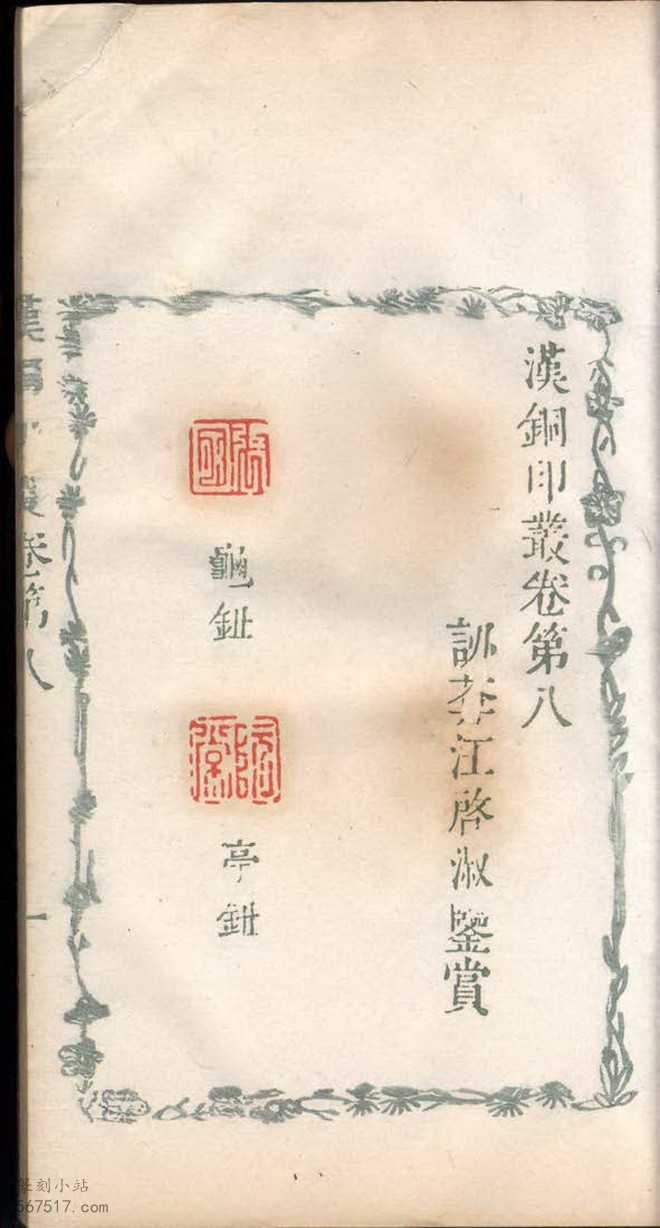 漢銅印叢卷第八
訒葊汪啓淑鑒賞
龜鈕
亭鈕
漢銅印叢卷第八
一
篆刻小站
567517.com